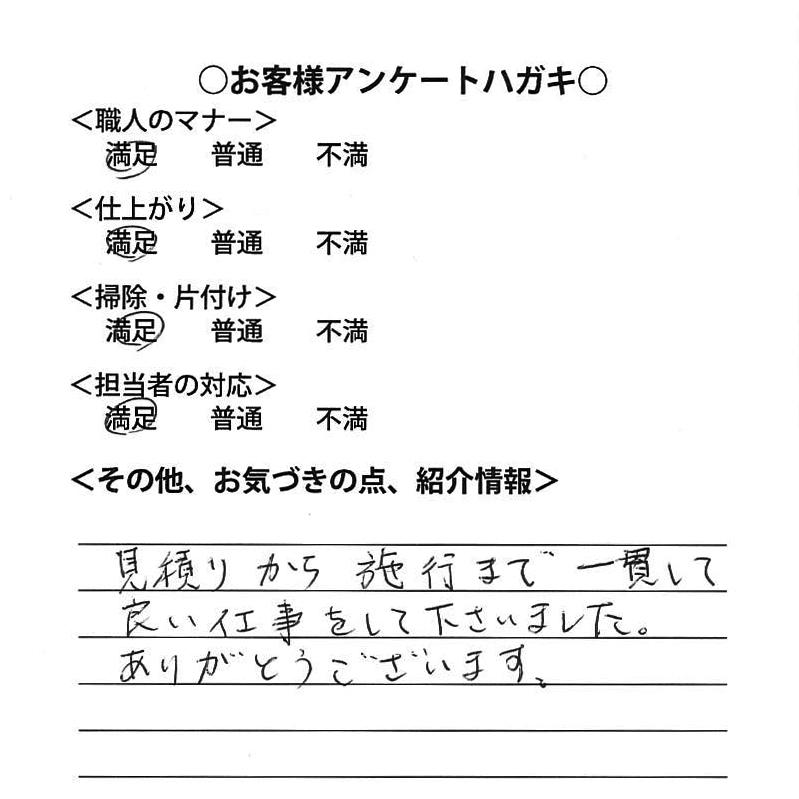 ○お客様アンケートハガキ○
＜職人のマナー＞
満足 普通 不満
＜仕上がり＞
満足 普通 不満
＜掃除・片付け＞
満足 普通 不満
＜担当者の対応＞
満足 普通 不満
＜その他、お気づきの点、紹介情報＞
見積りから施行まで一貫して
良い仕事をして下さいました。
ありがとうございます。